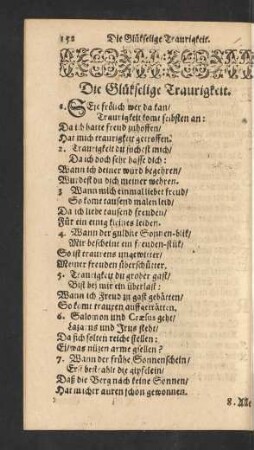 152 Die Glükselige Traurigkeit.
Die Glükselige Traurigkeit.
1. SEit frölich wer da kan/
Traurigkeit komt selbsten an:
Da ich hatte freud zuhoffen/
Hat mich traurigkeit getroffen.
2. Traurigkeit du suchst mich/
Da ich doch sehr hasse dich:
Wann ich deiner würd begehren/
Würdest du dich meiner wehren.
3 Wann mich einmal liebet freud/
So komt tausend mālen leid/
Da ich liebe tausend freuden/
Für ein einig kleines leiden.
4. Wann der guldne Sonnen-blik/
Mir bescheint ein freuden-stük/
So ist traurens ungewitter/
Meiner freuden überschütter.
5. Traurigkeit du großer gast/
Bist bei mir ein überlast:
Wann ich Freud zu gast gebätten/
So komt trauren aufgeträtten.
6. Salomon und Crœsus geht/
Lazarus und Irus steht/
Da sich selten reiche stellen:
Ei/was nüzen arme gsellen?
7. Wann der frühe Sonnenschein/
Erst bestrahlt die gipfelein/
Daß die Berg nach keine Sonnen/
Hat mither auren schon gewonnen.
8.